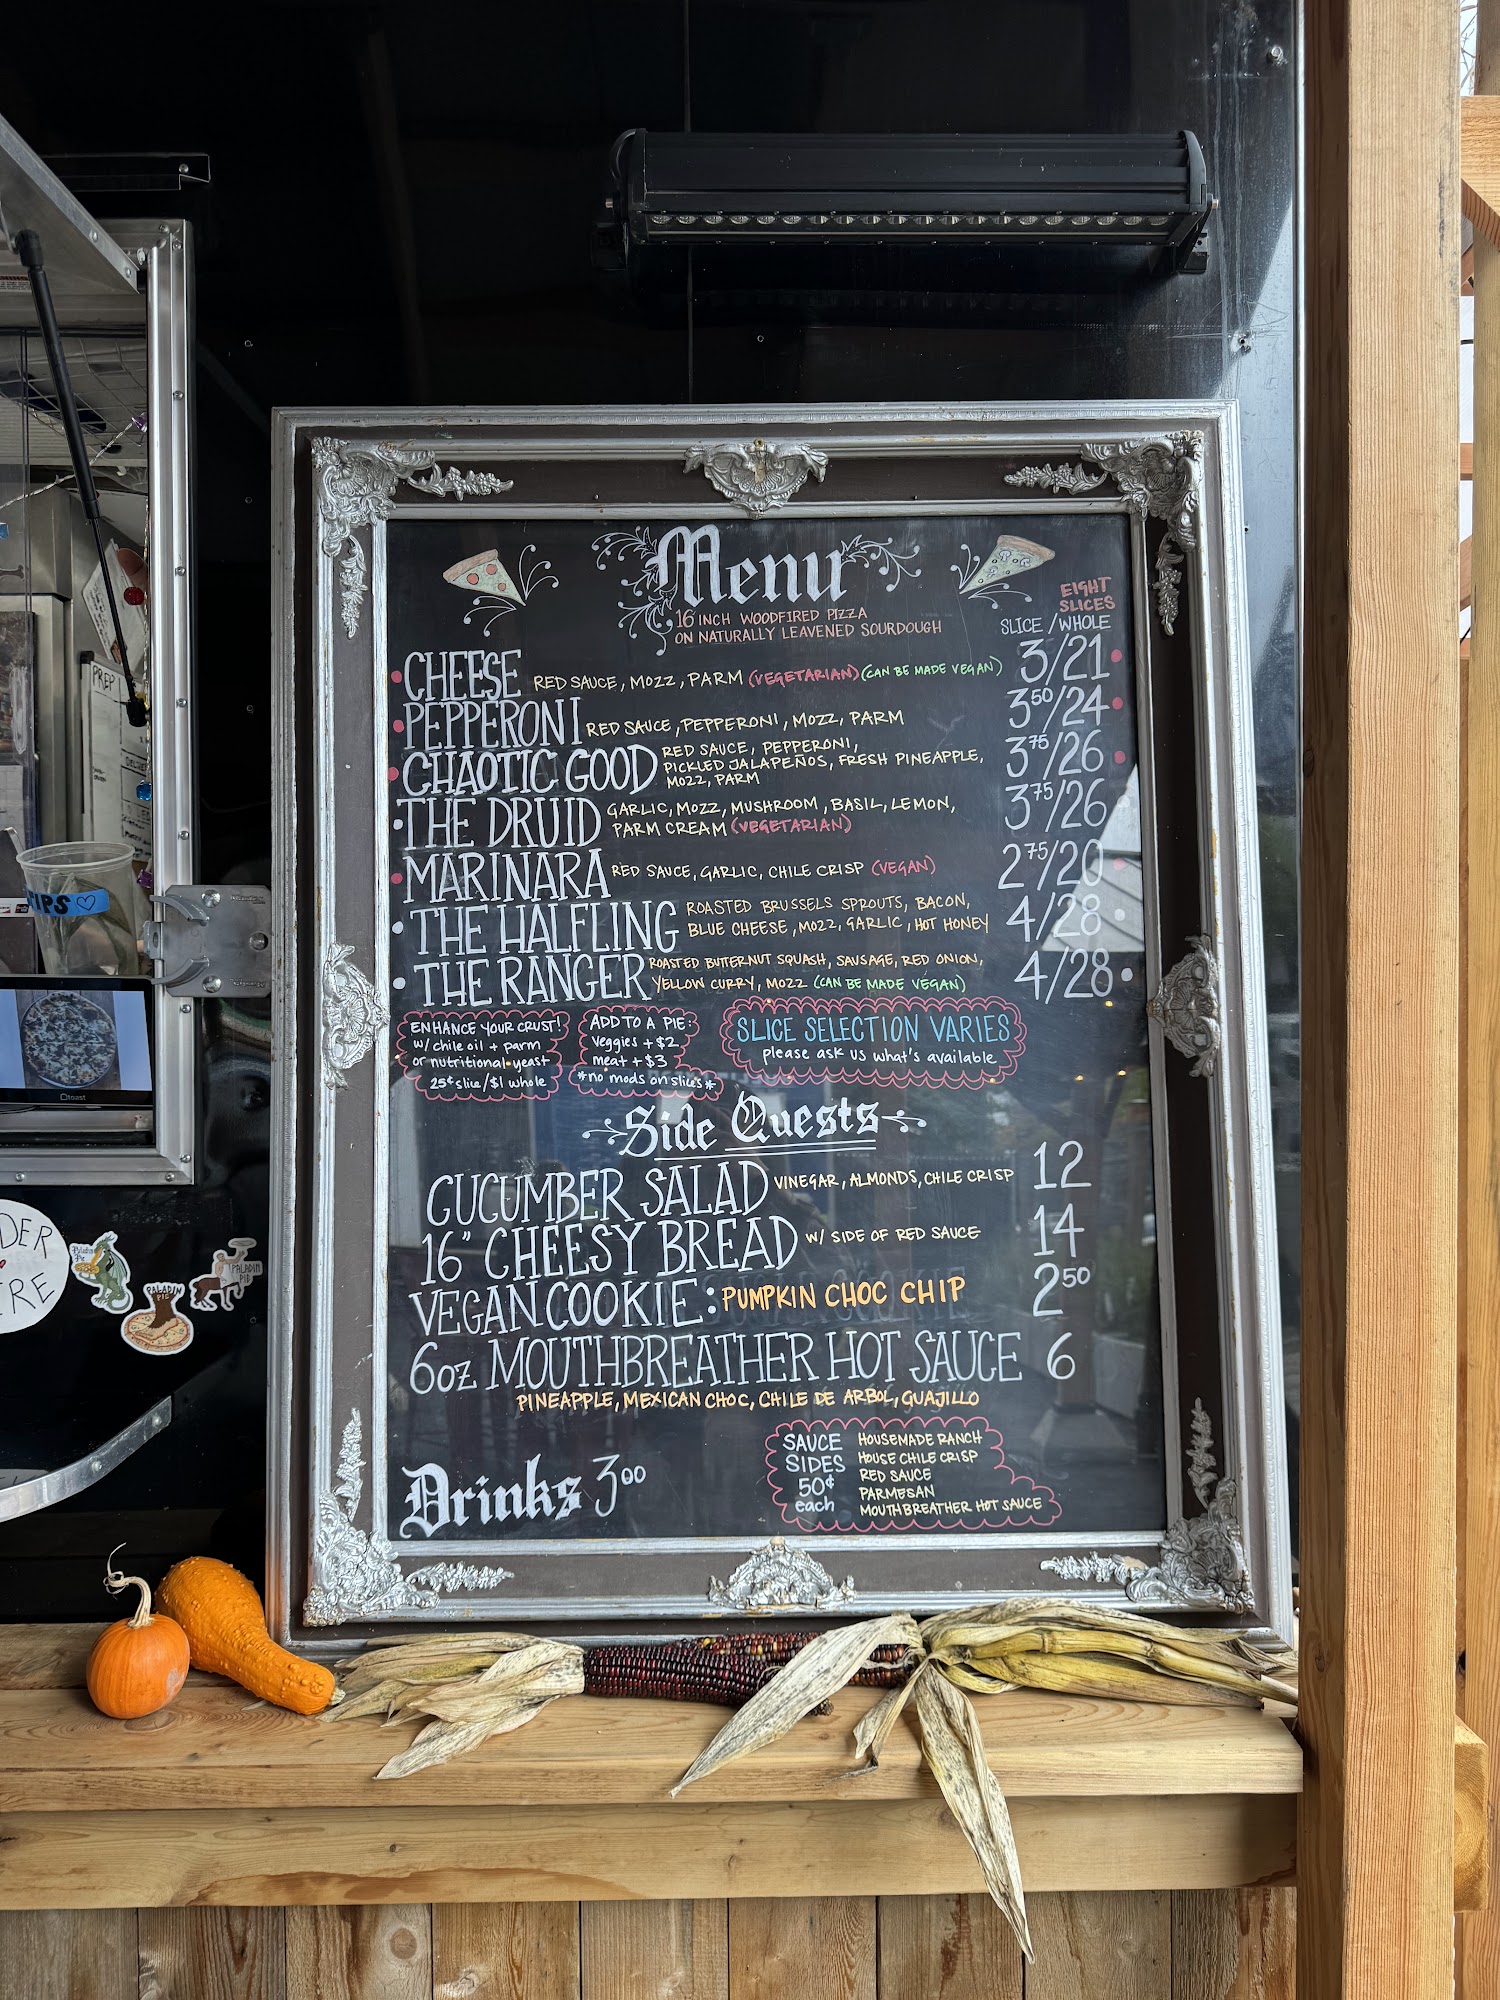 Menu
16 INCH WOODFIRED PIZZA
ON NATURALLY LEAVENED SOURDOUGH
EIGHT
SLICES
SLICE / WHOLE
CHEESE RED SAUCE, MOZZ, PARM (VEGETARIAN) (CAN BE MADE VEGAN) 3/21
PEPPERONI RED SAUCE, PEPPERONI, MOZZ, PARM 3⁵⁰/24
CHAOTIC GOOD RED SAUCE, PEPPERONI,
PICKLED JALAPEÑOS, FRESH PINEAPPLE,
MOZZ, PARM 3⁷⁵/26
THE DRUID GARLIC, MOZZ, MUSHROOM, BASIL, LEMON,
PARM CREAM (VEGETARIAN) 3⁷⁵/26
MARINARA RED SAUCE, GARLIC, CHILE CRISP (VEGAN) 2⁷⁵/20
THE HALFLING ROASTED BRUSSELS SPROUTS, BACON,
BLUE CHEESE, MOZZ, GARLIC, HOT HONEY 4/28
THE RANGER ROASTED BUTTERNUT SQUASH, SAUSAGE, RED ONION,
YELLOW CURRY, MOZZ (CAN BE MADE VEGAN) 4/28
ENHANCE YOUR CRUST!
w/ chile oil + parm
or nutritional yeast
25¢ slice/$1 whole
ADD TO A PIE:
veggies + $2
meat + $3
*no mods on slices*
SLICE SELECTION VARIES
please ask us what's available
Side Quests
CUCUMBER SALAD VINEGAR, ALMONDS, CHILE CRISP 12
16" CHEESY BREAD W/ SIDE OF RED SAUCE 14
VEGAN COOKIE: PUMPKIN CHOC CHIP 2⁵⁰
6oz MOUTHBREATHER HOT SAUCE 6
PINEAPPLE, MEXICAN CHOC, CHILE DE ARBOL, GUAJILLO
Drinks 3⁰⁰
SAUCE
SIDES
50¢
each
HOUSEMADE RANCH
HOUSE CHILE CRISP
RED SAUCE
PARMESAN
MOUTHBREATHER HOT SAUCE
PREP
TIPS ♡
toast
PALADIN
PIE
PALADIN
PIE